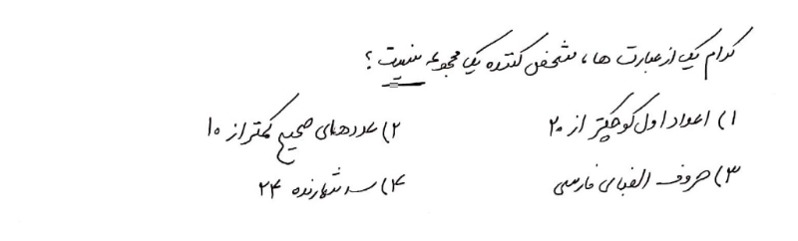 کدام یک از عبارت ها، مشخص کننده یک مجموعه نیست؟
۱) اعداد اول کوچکتر از ۲۰ ۲) عددهای صحیح کمتر از ۱۰
۳) حروف الفبای فارسی ۴) سه شمارنده ۲۴